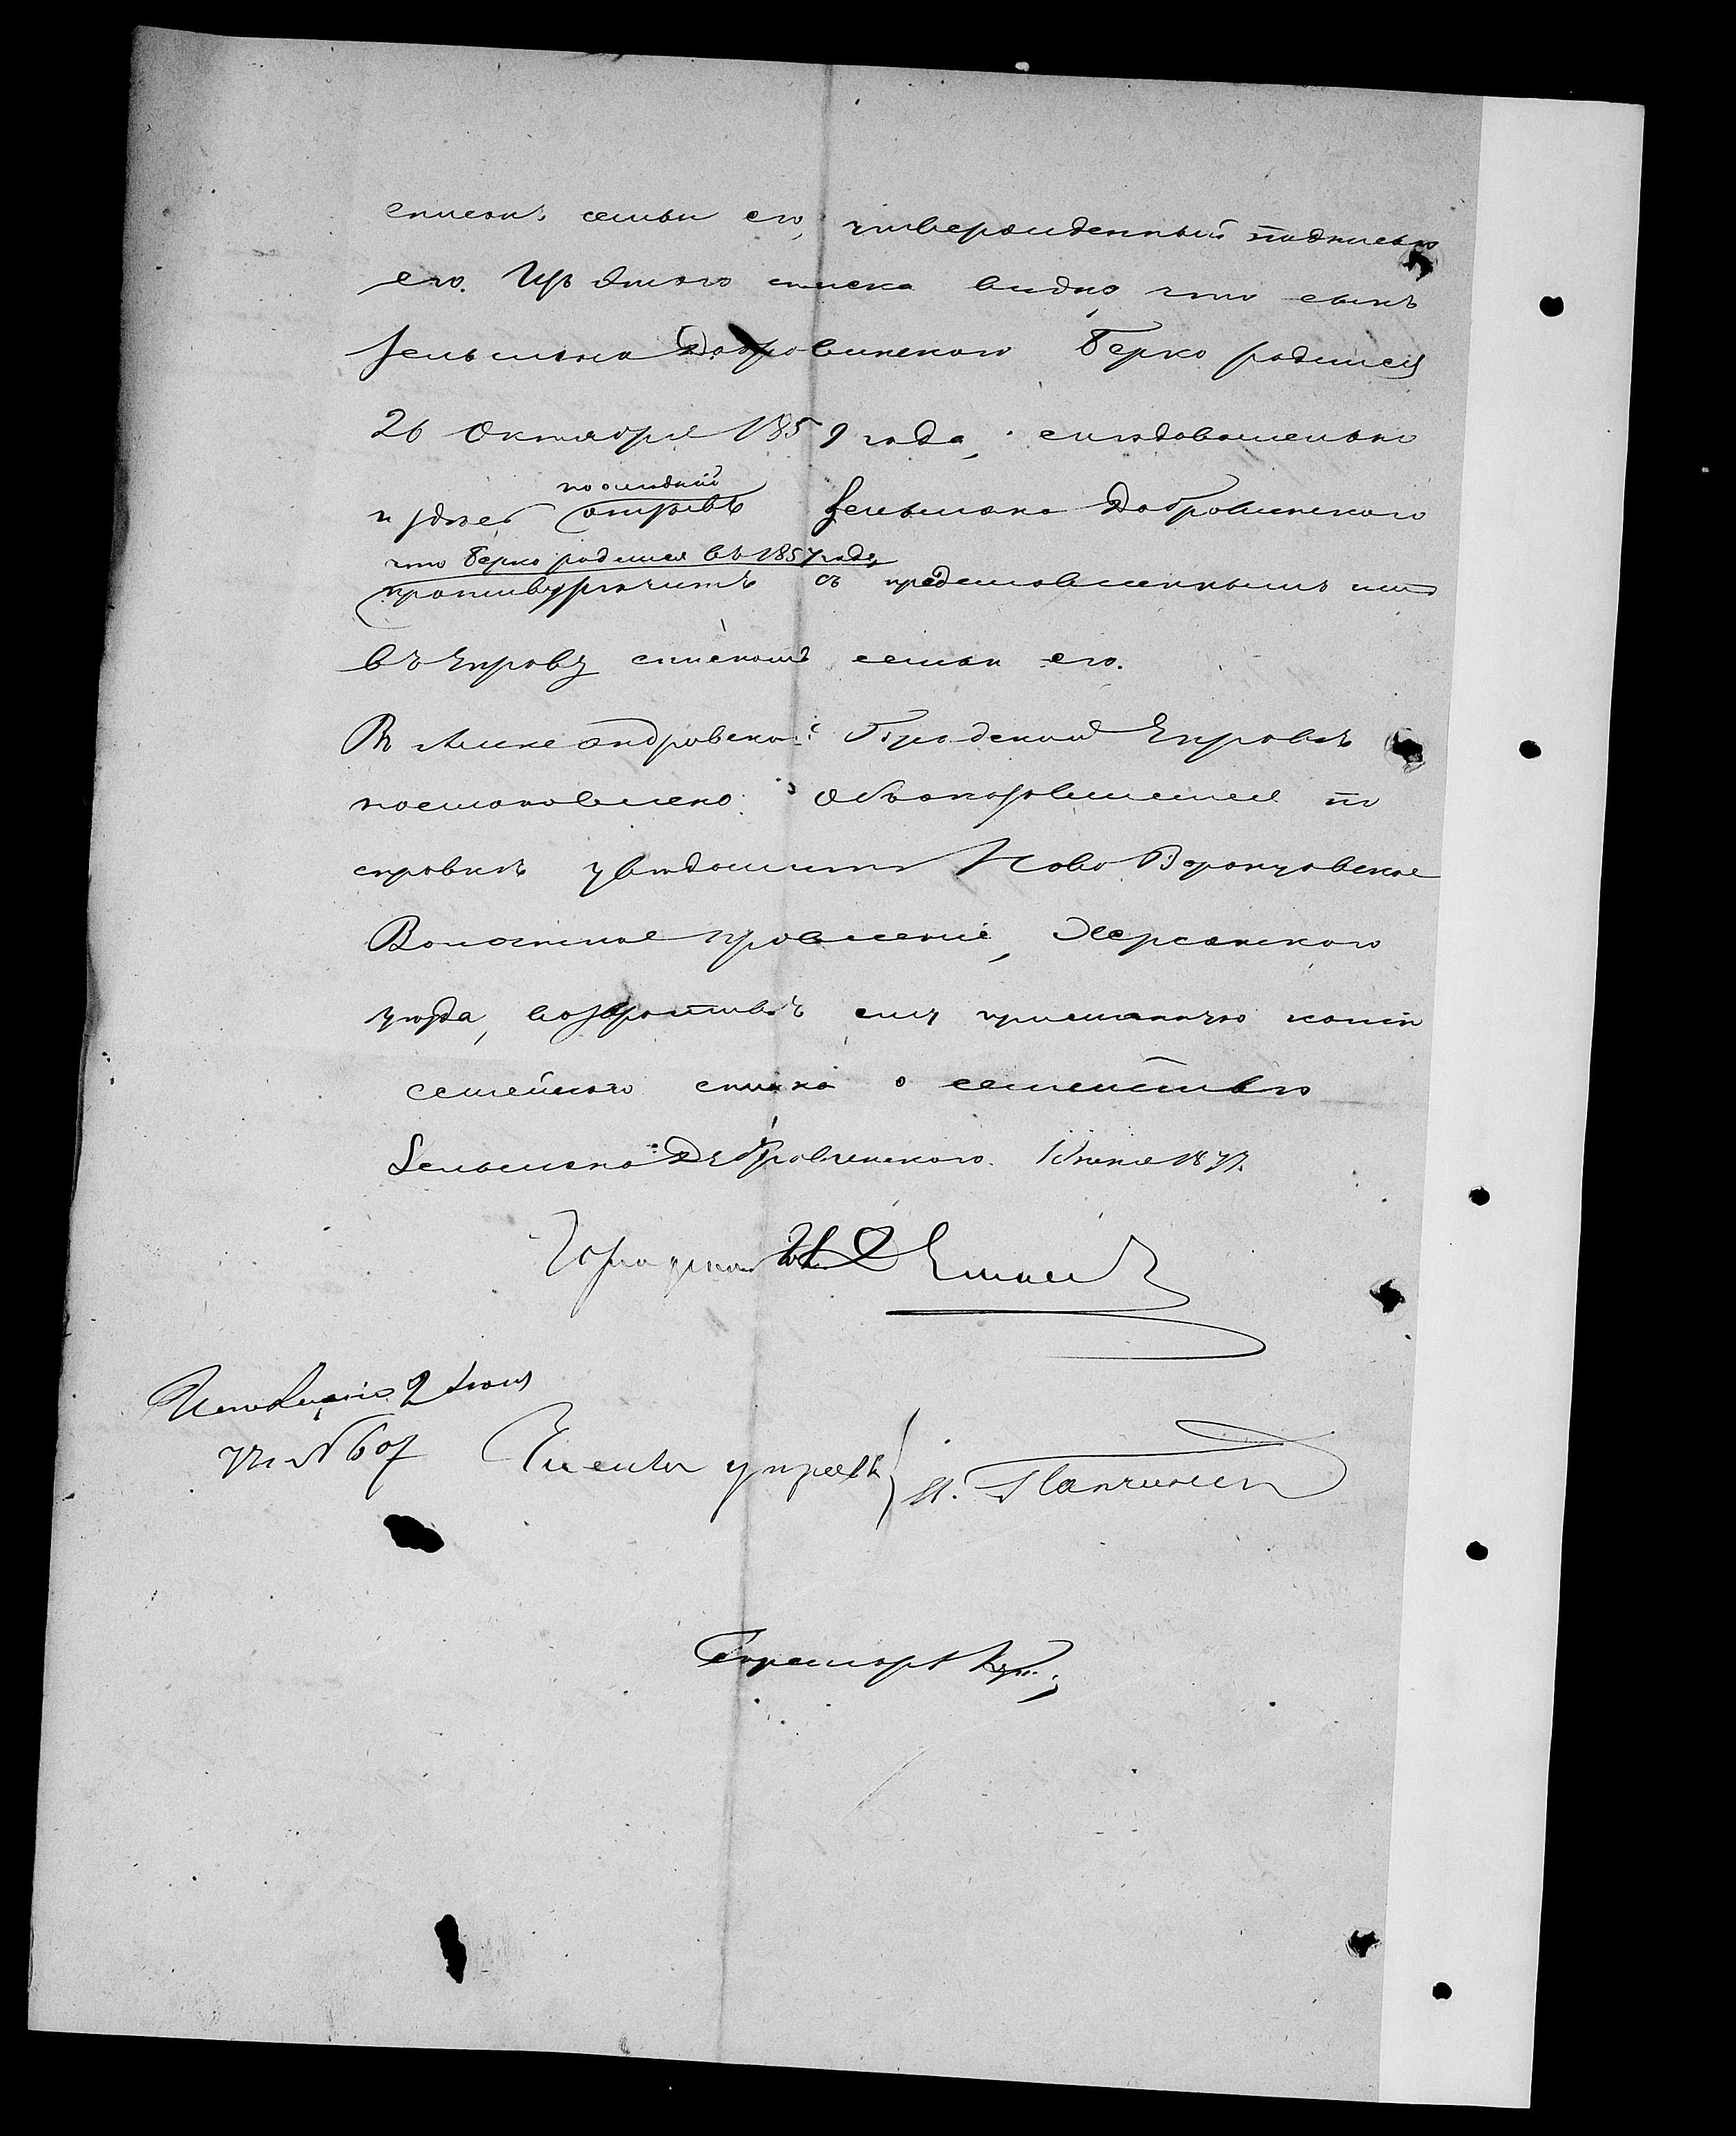 списокъ семьи его, утвержденный подписью
его. Изъ этого списка видно что сынъ
Зельмана Добровинского Берко родился
26 Октября 1859 года, следовательно
последній
отзывъ Зельмана Добровинского
что Берко родился въ 1857 году,
противуречитъ съ представленнымъ имъ
въ Управу спискомъ семьи его.
Въ Александровской Городской Управѣ
постановлено: Объ оказавшемся по
справкѣ увѣдомить Ново Воронцовское
Волостное правленіе, Херсонского
уѣзда, возвративъ ему присланную копію
семейного списка о семействѣ
Зельмана Добровинского. Іюня 1877.
Городской
Исполнено 2 Іюня
за № 607 Члены управы
Секретарь